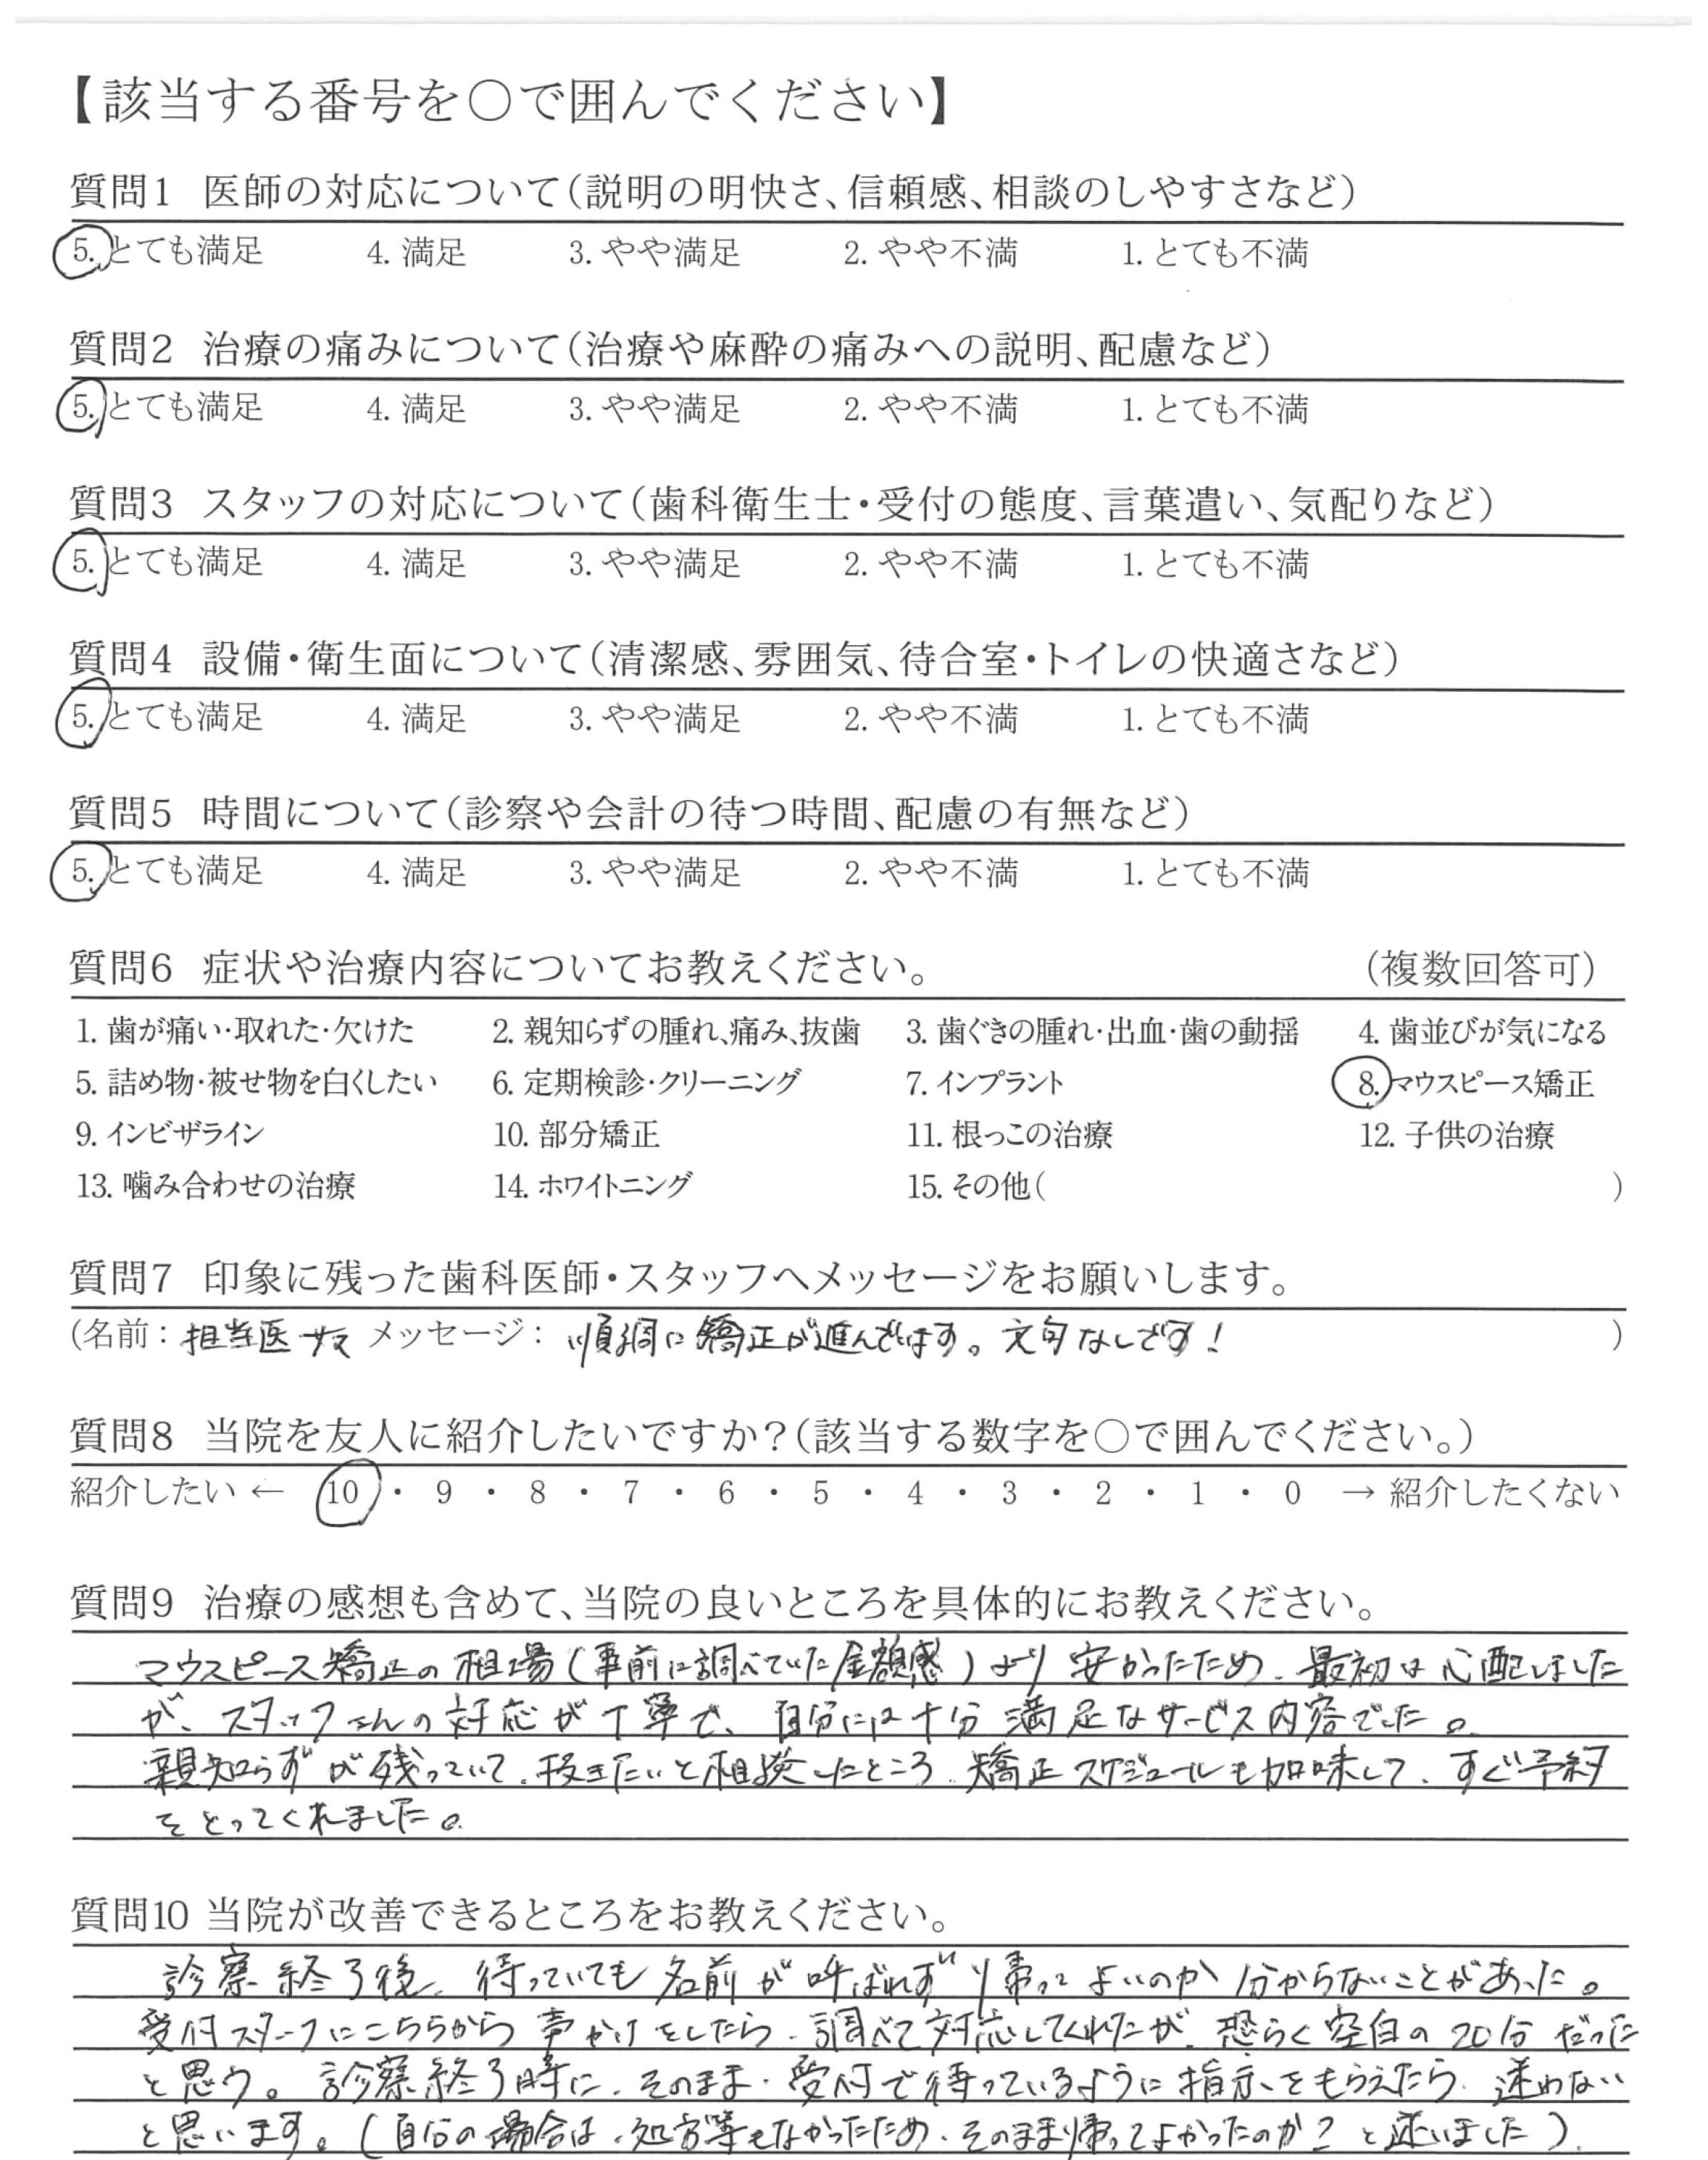 【該当する番号を○で囲んでください】
質問1 医師の対応について(説明の明快さ、信頼感、相談のしやすさなど)
5. とても満足 4. 満足 3. やや満足 2. やや不満 1. とても不満
質問2 治療の痛みについて(治療や麻酔の痛みへの説明、配慮など)
5. とても満足 4. 満足 3. やや満足 2. やや不満 1. とても不満
質問3 スタッフの対応について(歯科衛生士・受付の態度、言葉遣い、気配りなど)
5. とても満足 4. 満足 3. やや満足 2. やや不満 1. とても不満
質問4 設備・衛生面について(清潔感、雰囲気、待合室・トイレの快適さなど)
5. とても満足 4. 満足 3. やや満足 2. やや不満 1. とても不満
質問5 時間について(診察や会計の待つ時間、配慮の有無など)
5. とても満足 4. 満足 3. やや満足 2. やや不満 1. とても不満
質問6 症状や治療内容についてお教えください。 (複数回答可)
1. 歯が痛い・取れた・欠けた 2. 親知らずの腫れ、痛み、抜歯 3. 歯ぐきの腫れ・出血・歯の動揺 4. 歯並びが気になる
5. 詰め物・被せ物を白くしたい 6. 定期検診・クリーニング 7. インプラント 8. マウスピース矯正
9. インビザライン 10. 部分矯正 11. 根っこの治療 12. 子供の治療
13. 噛み合わせの治療 14. ホワイトニング 15. その他( )
質問7 印象に残った歯科医師・スタッフへメッセージをお願いします。
(名前: 担当医サマ メッセージ: 順調に矯正が進んでます。文句なしです! )
質問8 当院を友人に紹介したいですか?(該当する数字を○で囲んでください。)
紹介したい ← 10 ・ 9 ・ 8 ・ 7 ・ 6 ・ 5 ・ 4 ・ 3 ・ 2 ・ 1 ・ 0 → 紹介したくない
質問9 治療の感想も含めて、当院の良いところを具体的にお教えください。
マウスピース矯正の相場(事前に調べていた金額感)より安かったため、最初は心配しました
が、スタッフさんの対応が丁寧で、自分には十分満足なサービス内容でした。
親知らずが残っていて、抜きたいと相談したところ、矯正スケジュールも加味して、すぐ予約
をとってくれました。
質問10 当院が改善できるところをお教えください。
診察終了後、待っていても名前が呼ばれず、帰ってよいのか分からないことがあった。
受付スタッフにこちらから声かけをしたら、調べて対応してくれたが、恐らく空白の20分だった
と思う。診察終了時に、そのまま、受付で待っているように指示をもらえたら、迷わない
と思います。(自分の場合は、処方等もなかったため、そのまま帰ってよかったのか?と迷いました)